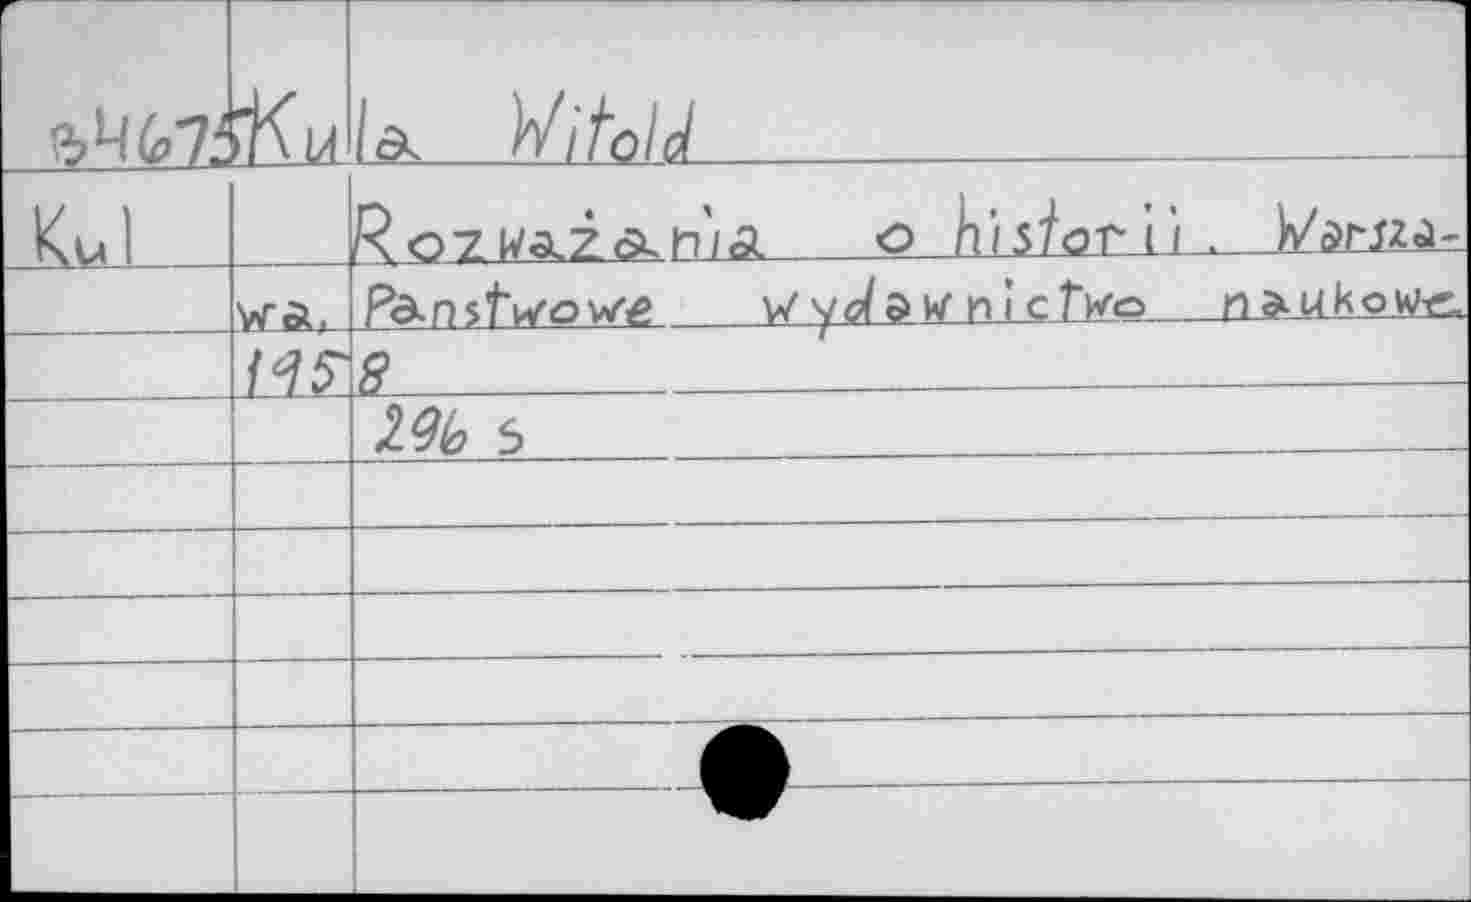 34675 Kula Witold
Kul Rozważania o historii. Warsza-
wa, Panstwowe wydawnictwo naukowe,
1958
296 s